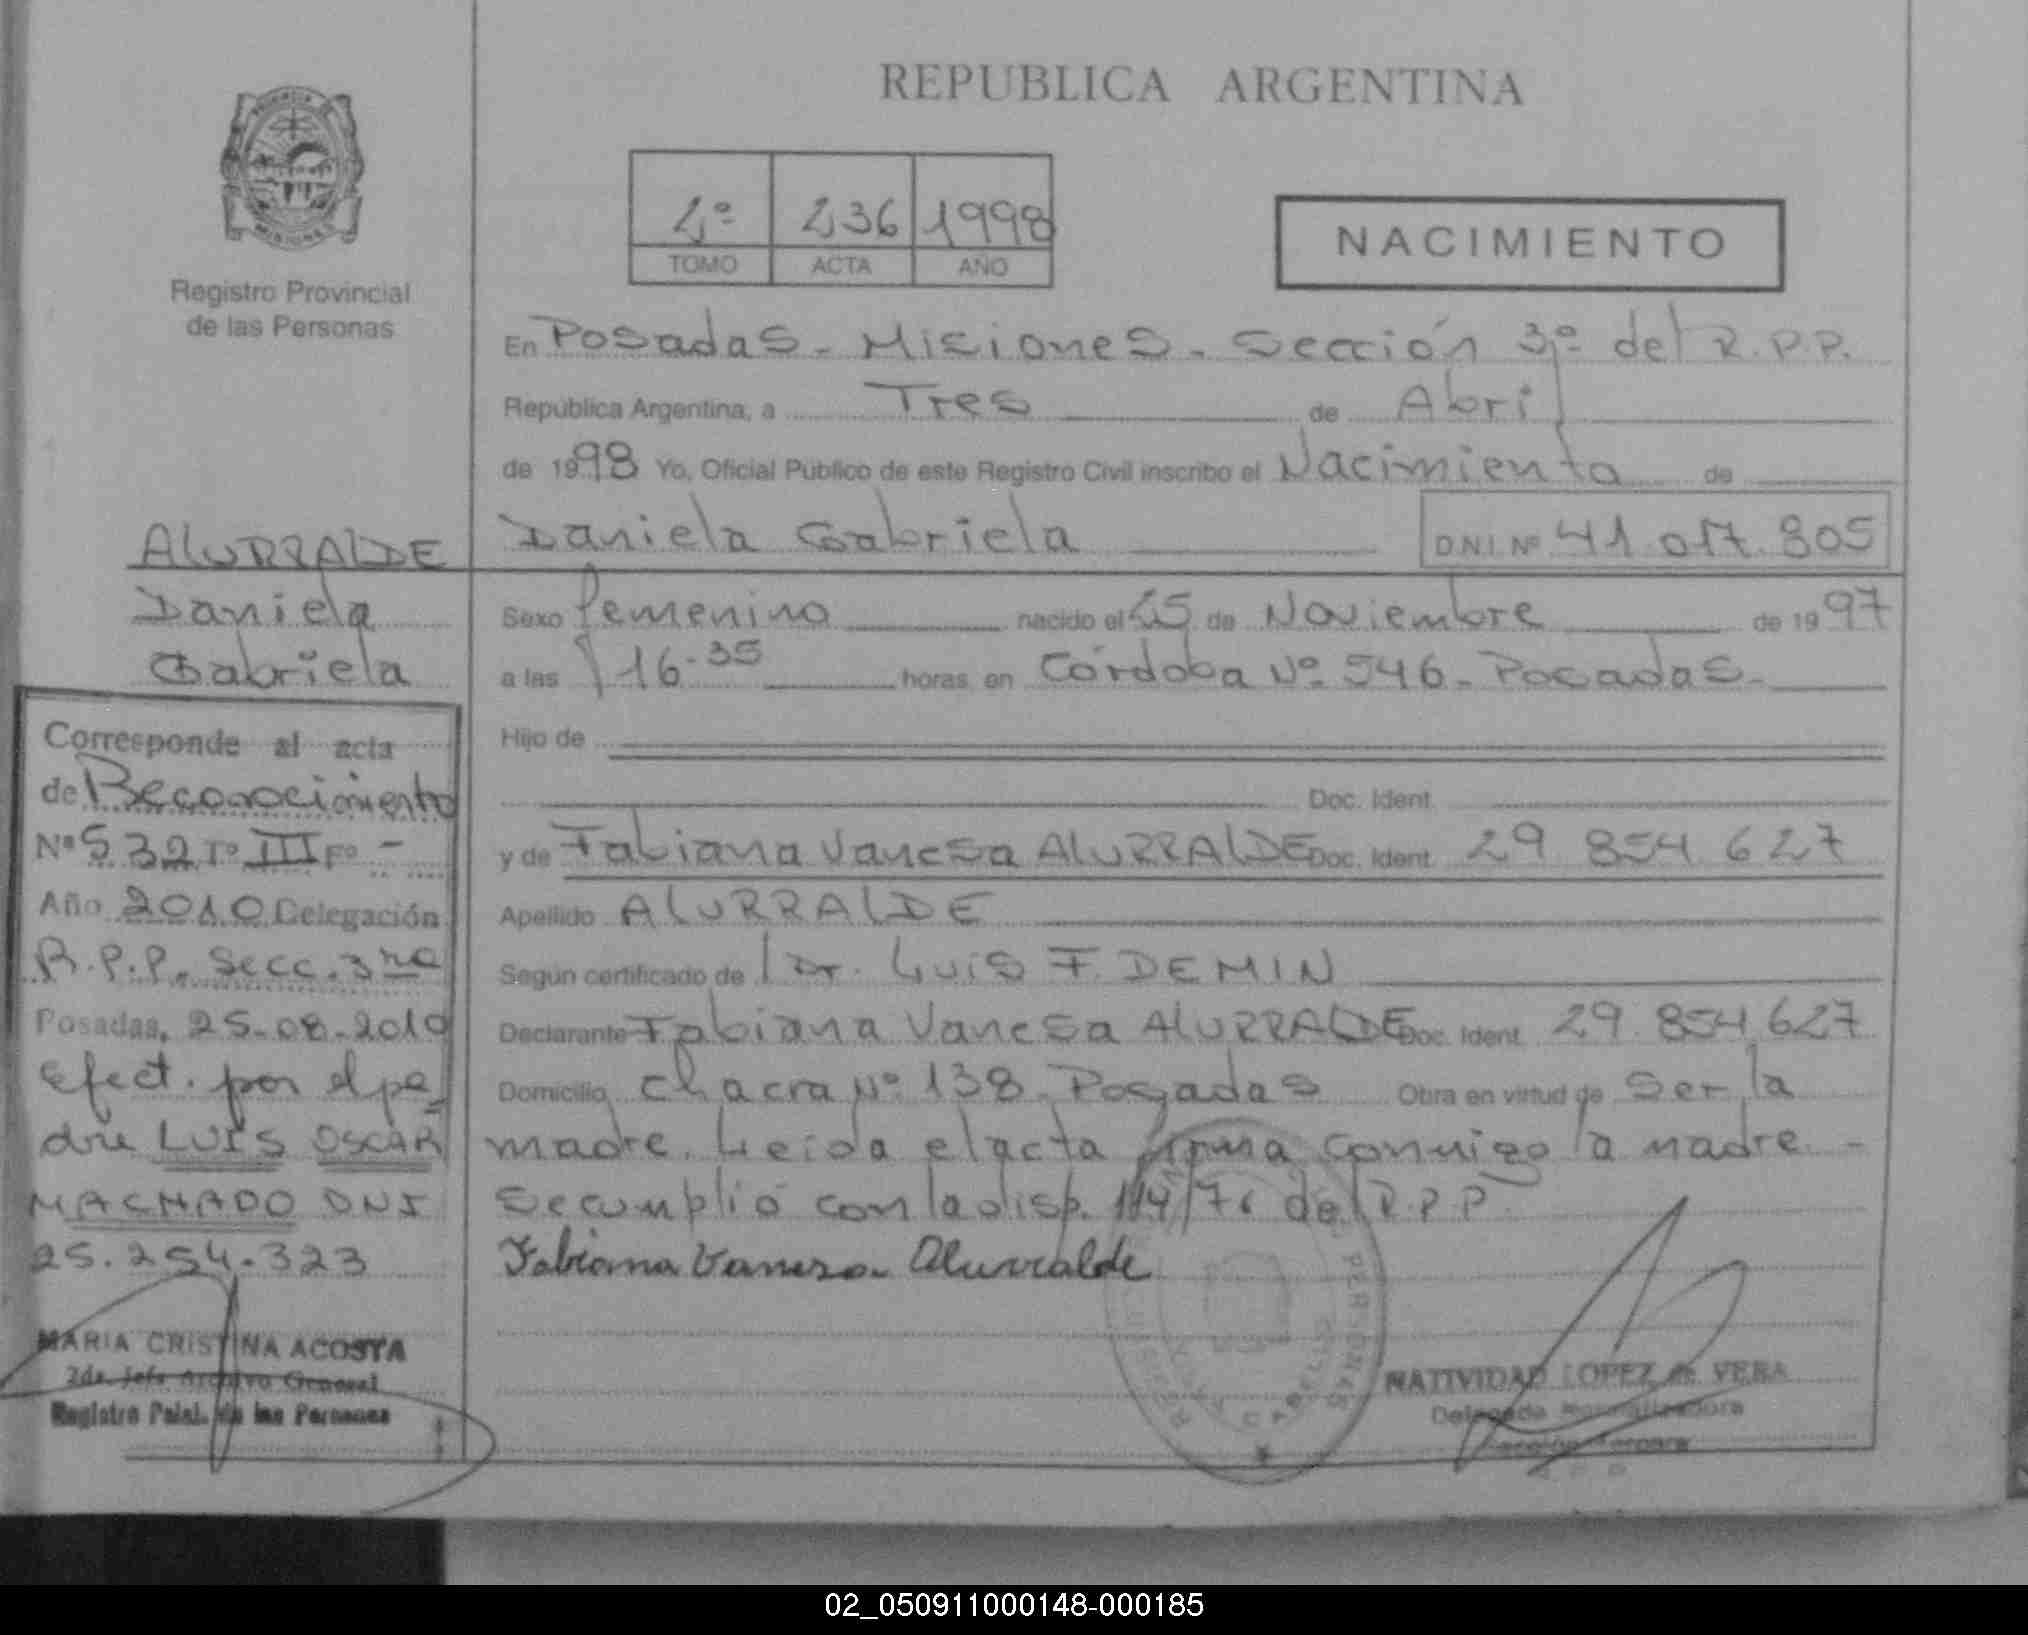 REPUBLICA ARGENTINA
MISIONES
Registro Provincial
de las Personas
2º 236 1998
TOMO ACTA AÑO
NACIMIENTO
En Posadas - Misiones - Sección 3º del R.P.P.
República Argentina, a Tres de Abril
de 1998 Yo, Oficial Público de este Registro Civil inscribo el Nacimiento de
Daniela Gabriela D.N.I Nº 41.017.805
Sexo femenino nacido el 25 de Noviembre de 1997
a las 16.35 horas en Córdoba Nº 546 - Posadas -
Hijo de
Doc. Ident.
y de Fabiana Vanesa AlURRAlDE Doc. Ident. 29 854 627
Apellido AlURRAlDE
Según certificado de Dr. Luis F. DEMIN
Declarante Fabiana Vanesa AlURRAlDE Doc. Ident. 29.854.627
Domicilio chacra Nº 138 - Posadas Obra en virtud de Ser la
madre. Leida el acta firma conmigo la madre. -
Se cumplió con la disp. 114/76 del R.P.P.
Fabiana Vanesa Alurralde
NATIVIDAD LOPEZ de VERA
Delegada Normalizadora
AlURRAlDE
Daniela
Gabriela
Corresponde al acta
de Reconocimiento
Nº 532 Tº III Fº -
Año 2010 Delegación
R.P.P. Secc. 3ra
Posadas, 25-08-2010
Efect. por el pa-
dre LUIS OSCAR
MACHADO DNI
25.254.323
MARIA CRISTINA ACOSTA
2da. Jefe Archivo General
Registro Pcial. de las Personas
02_050911000148-000185